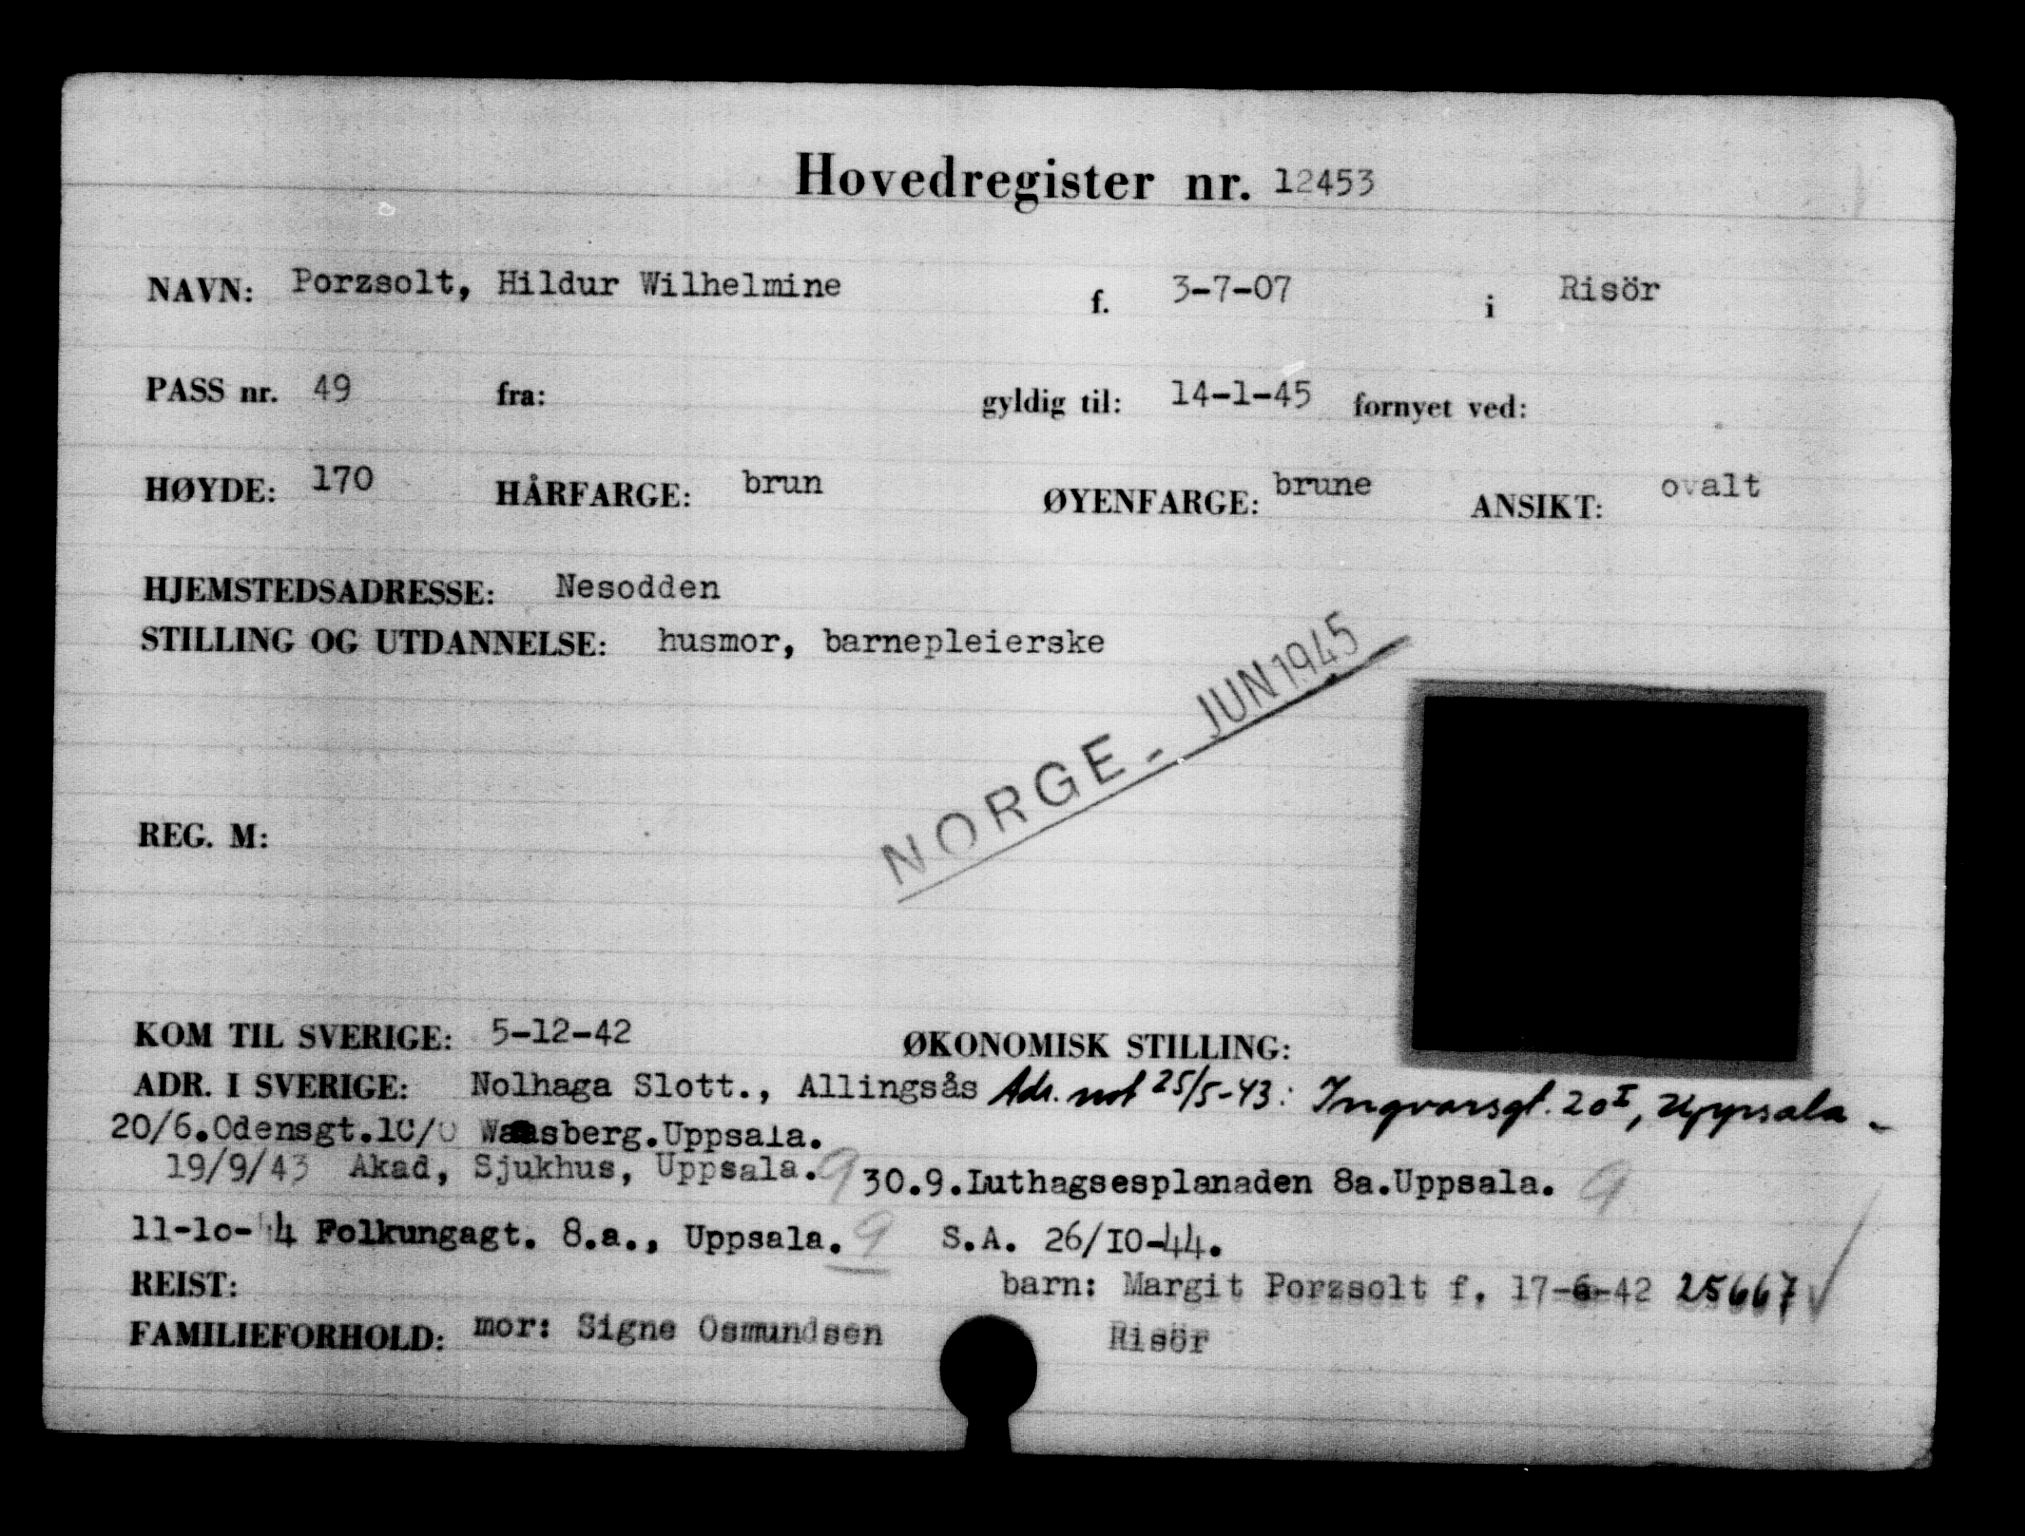 Hovedregister nr. 12453
NAVN: Porzsolt, Hildur Wilhelmine f. 3-7-07 i Risör
PASS nr. 49 fra: gyldig til: 14-1-45 fornyet ved:
HØYDE: 170 HÅRFARGE: brun ØYENFARGE: brune ANSIKT: ovalt
HJEMSTEDSADRESSE: Nesodden
STILLING OG UTDANNELSE: husmor, barnepleierske
NORGE - JUN 1945
REG. M:
KOM TIL SVERIGE: 5-12-42 ØKONOMISK STILLING:
ADR. I SVERIGE: Nolhaga Slott., Allingsås Adr. 25/5-43: Ingvarsgt. 20 I, Uppsala -
20/6.Odensgt.1C/O Waasberg.Uppsala.
19/9/43 Akad, Sjukhus, Uppsala. 9 30.9.Luthagsesplanaden 8a.Uppsala. 9
11-10-44 Folkungagt. 8.a., Uppsala. 9 S.A. 26/IO-44.
REIST: barn: Margit Porzsolt f. 17-6-42 25667
FAMILIEFORHOLD: mor: Signe Osmundsen Risör